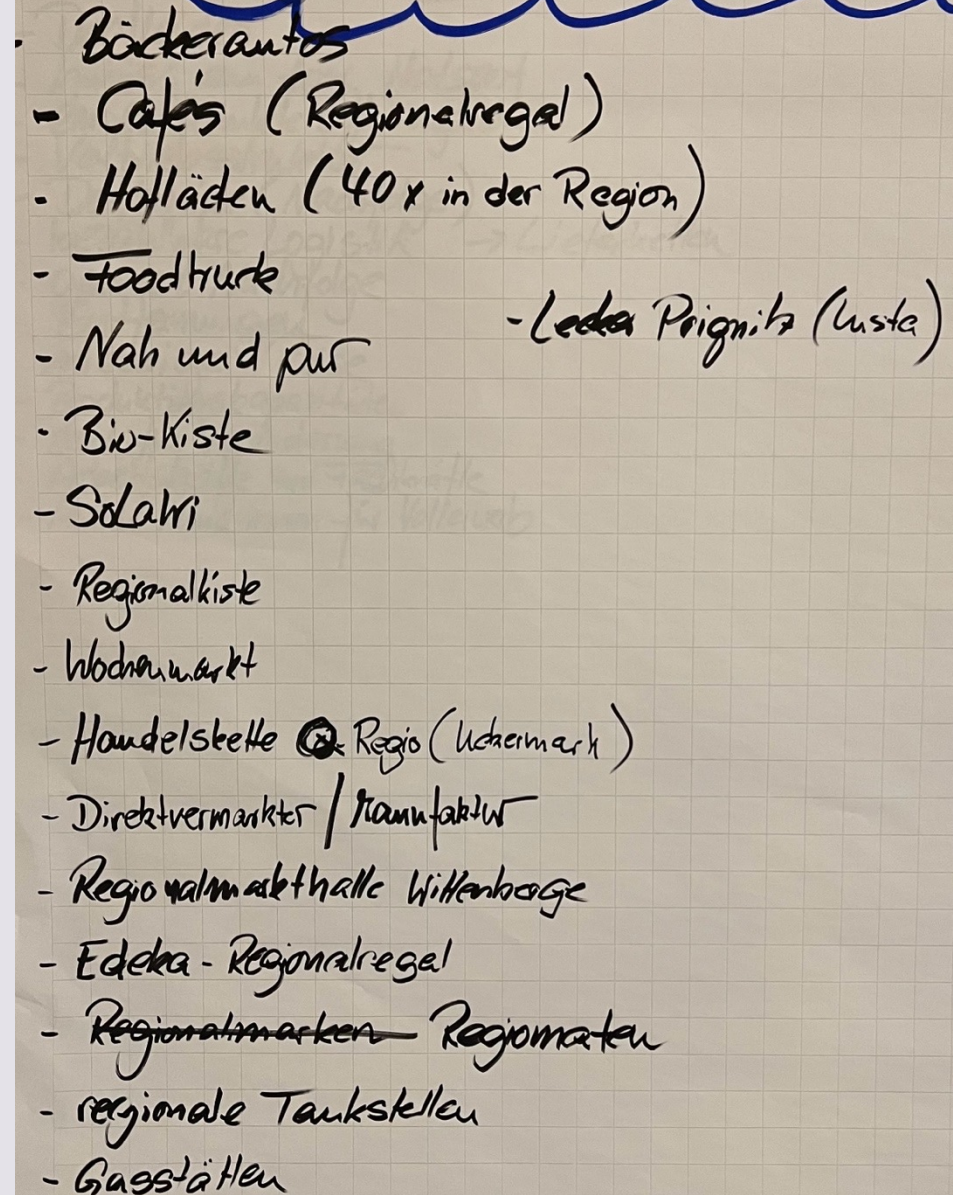 - Bäckerautos
- Cafés (Regionalregal)
- Hofläden (40x in der Region)
- Foodtruck
- Lecker Prignitz (Insta)
- Nah und pur
- Bio-Kiste
- SoLaWi
- Regionalkiste
- Wochenmarkt
- Handelskette Q-Regio (Uckermark)
- Direktvermarkter / Manufaktur
- Regionalmarkthalle Wittenberge
- Edeka - Regionalregal
- Regionalmarken Regiomaten
- regionale Tankstellen
- Gasstätten